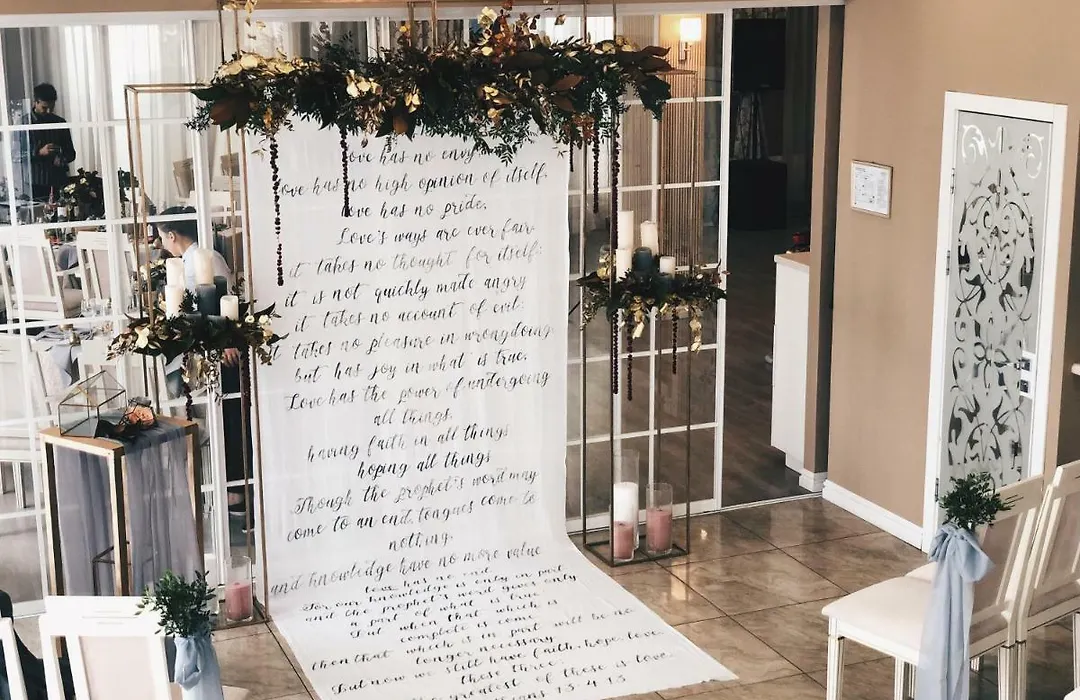 Love has no envy
Love has no high opinion of itself,
Love has no pride;
Love's ways are ever fair
it takes no thought for itself;
it is not quickly made angry
it takes no account of evil;
takes no pleasure in wrongdoing
but has joy in what is true;
Love has the power of undergoing
all things,
having faith in all things
hoping all things
Though the prophet's word may
come to an end, tongues come to
nothing,
and knowledge have no more value
Love has no end.
For our knowledge is only in part
and the prophet's word gives only
a part of what is true
But when that which is
complete is come
then that which is in part will be no
longer necessary
But now we still have faith, hope, love
these three;
greatest of these is love
13 4 13